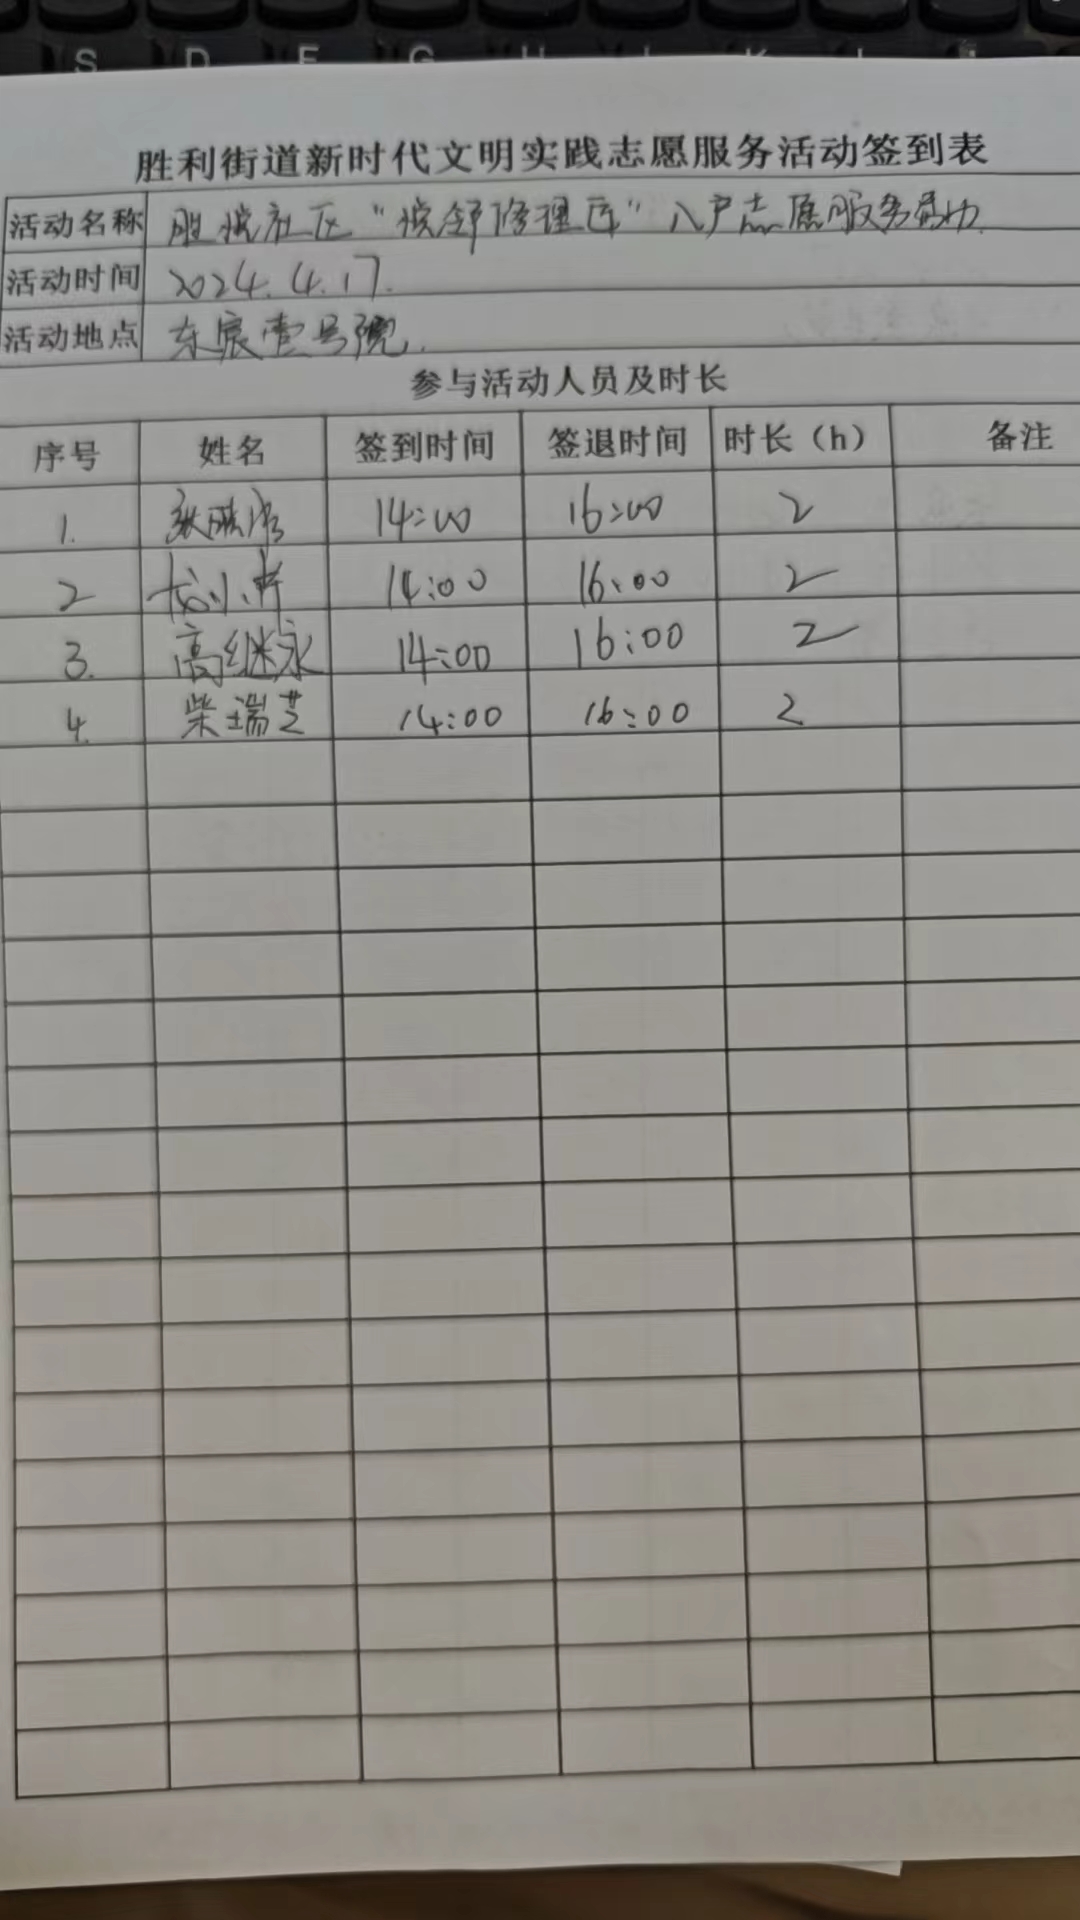 S D F G H J K L
胜利街道新时代文明实践志愿服务活动签到表
活动名称 胜控社区“缤舒修理匠”入户志愿服务活动
活动时间 2024.4.17.
活动地点 东宸壹号院.
参与活动人员及时长
序号 姓名 签到时间 签退时间 时长（h） 备注
1. 14:00 16:00 2
2 14:00 16:00 2
3. 高继永 14:00 16:00 2
4. 柴瑞芝 14:00 16:00 2